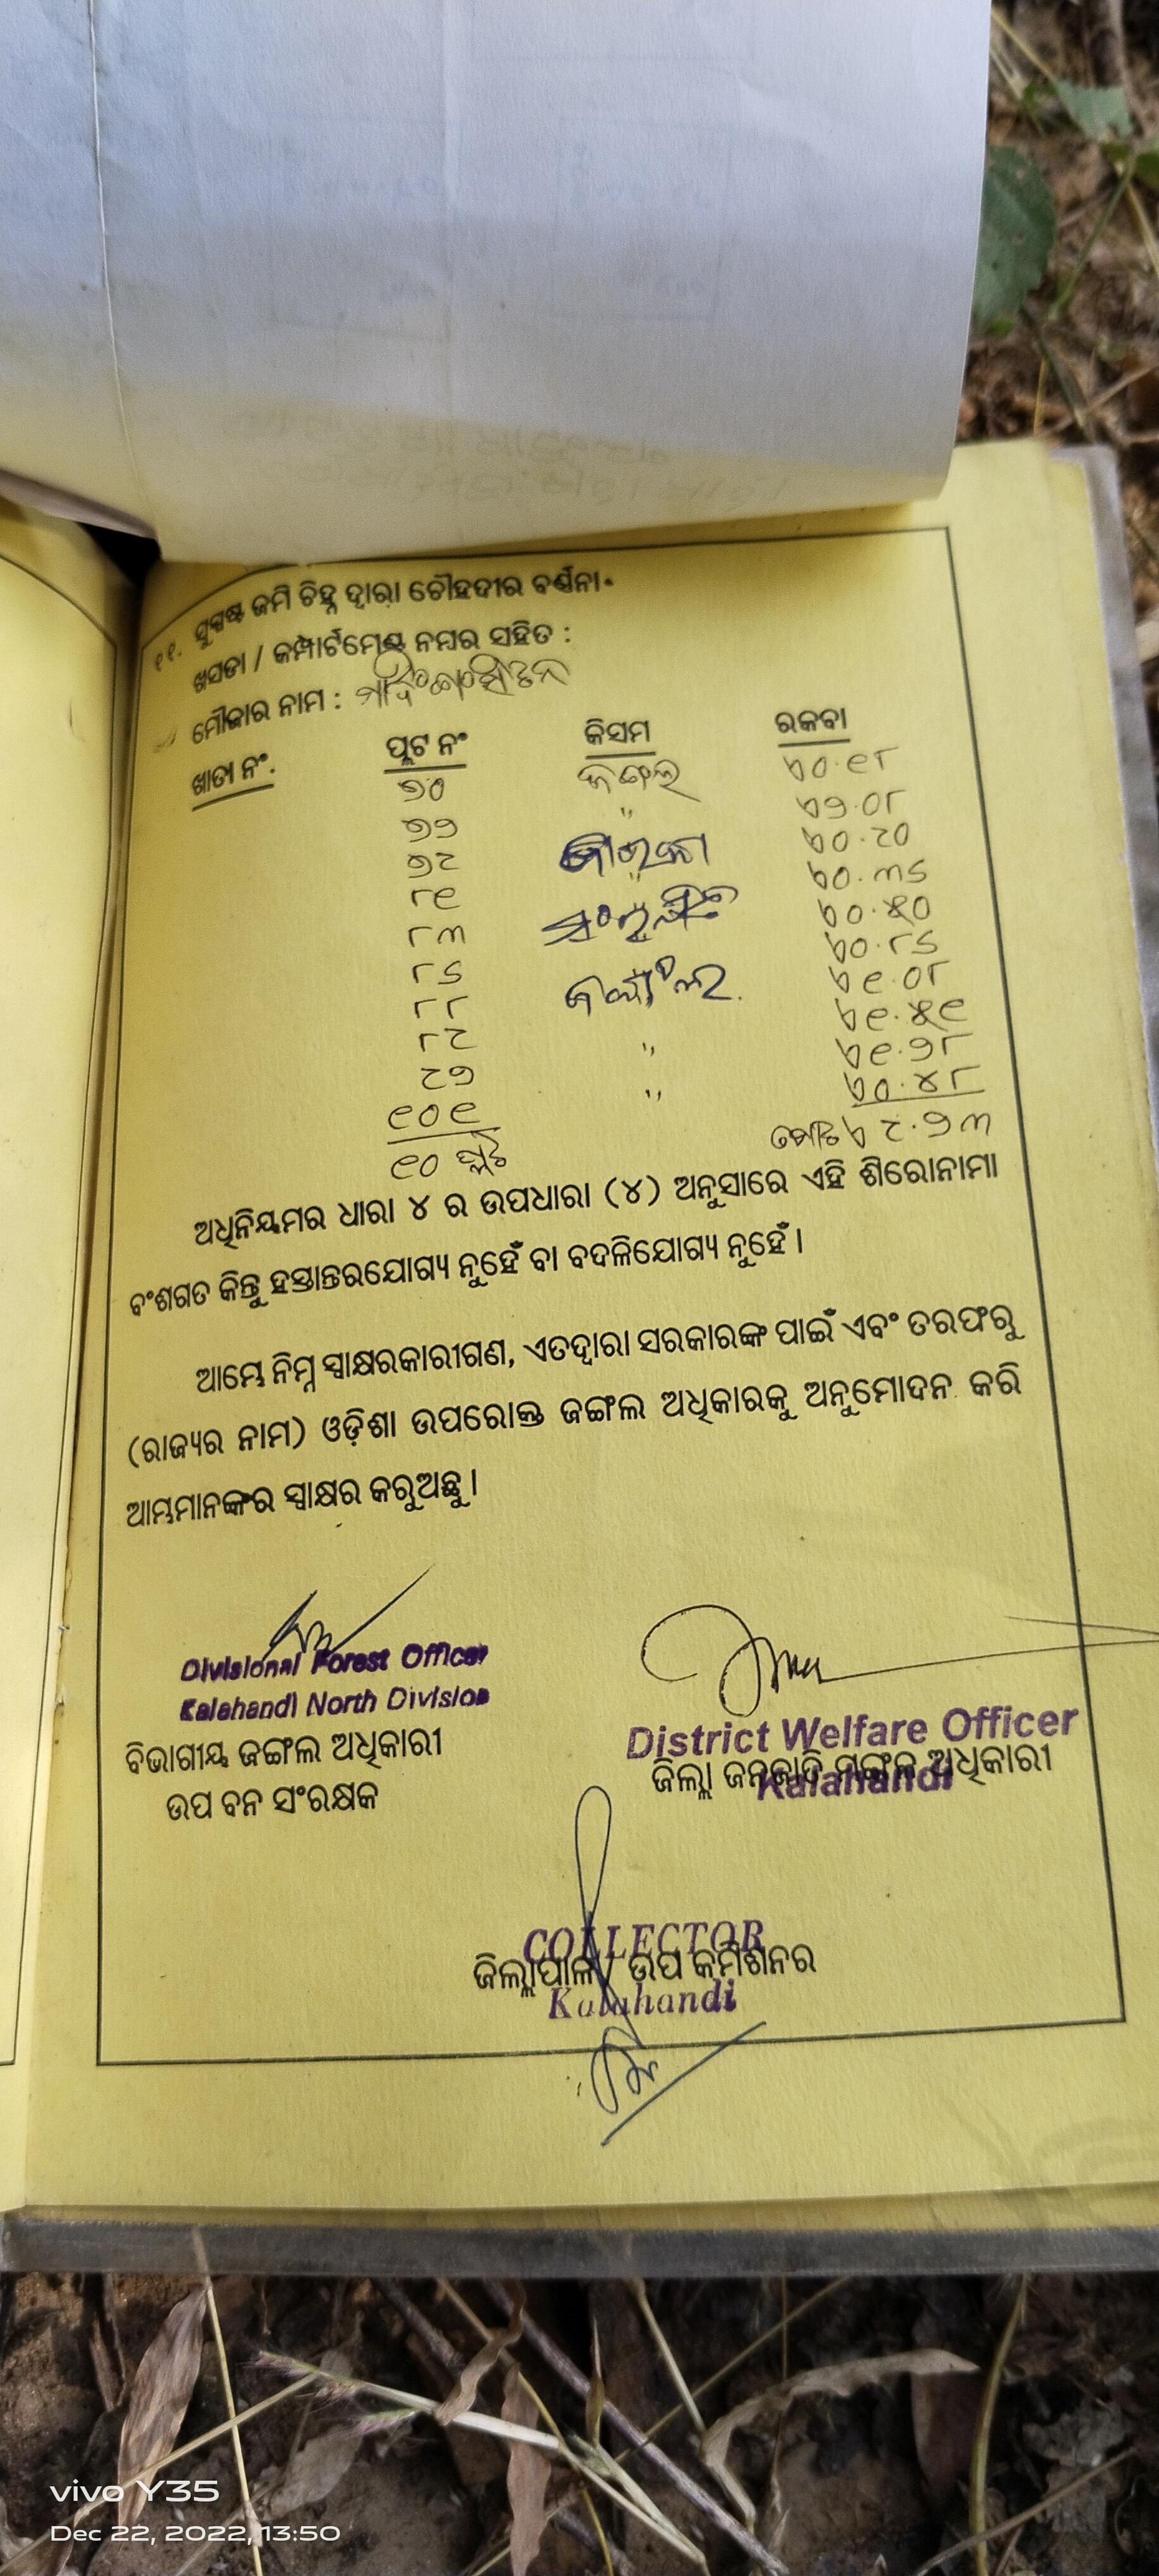 ୧୧. ସୁସ୍ପଷ୍ଟ ଜମି ଚିହ୍ନ ଦ୍ୱାରା ଚୌହଦୀର ବର୍ଣ୍ଣନା
ଖସଡା / କମ୍ପାର୍ଟମେଣ୍ଟ ନମ୍ବର ସହିତ :
ମୌଜାର ନାମ :
ଖାତା ନଂ. ପ୍ଲଟ ନଂ କିସମ ରକବା
୭୦ ଜଙ୍ଗଲ ୦.୧୮
୭୨ " ୨.୦୮
୭୯ ୦.୯୦
୮୧ " ୦.୩୫
୮୩ ୦.୫୦
୮୫ ୦.୮୫
୮୮ ୧.୦୮
୮୯ " ୧.୫୧
୯୨ " ୧.୨୮
୧୦୧ ୦.୪୮
୧୦ ପ୍ଲଟ ମୋଟ ୯.୨୩
ଅଧିନିୟମର ଧାରା ୪ ର ଉପଧାରା (୪) ଅନୁସାରେ ଏହି ଶିରୋନାମା
ବଂଶଗତ କିନ୍ତୁ ହସ୍ତାନ୍ତରଯୋଗ୍ୟ ନୁହେଁ ବା ବଦଳିଯୋଗ୍ୟ ନୁହେଁ ।
ଆମ୍ଭେ ନିମ୍ନ ସ୍ୱାକ୍ଷରକାରୀଗଣ, ଏତଦ୍ୱାରା ସରକାରଙ୍କ ପାଇଁ ଏବଂ ତରଫରୁ
(ରାଜ୍ୟର ନାମ) ଓଡ଼ିଶା ଉପରୋକ୍ତ ଜଙ୍ଗଲ ଅଧିକାରକୁ ଅନୁମୋଦନ କରି
ଆମ୍ଭମାନଙ୍କର ସ୍ୱାକ୍ଷର କରୁଅଛୁ ।
Divisional Forest Officer
Kalahandi North Division
ବିଭାଗୀୟ ଜଙ୍ଗଲ ଅଧିକାରୀ
ଉପ ବନ ସଂରକ୍ଷକ
District Welfare Officer
ଜିଲ୍ଲା ଜନଜାତି ମଙ୍ଗଳ ଅଧିକାରୀ
Kalahandi
COLLECTOR
ଜିଲ୍ଲାପାଳ / ଉପ କମିଶନର
Kalahandi
vivo Y35
Dec 22, 2022, 13:50